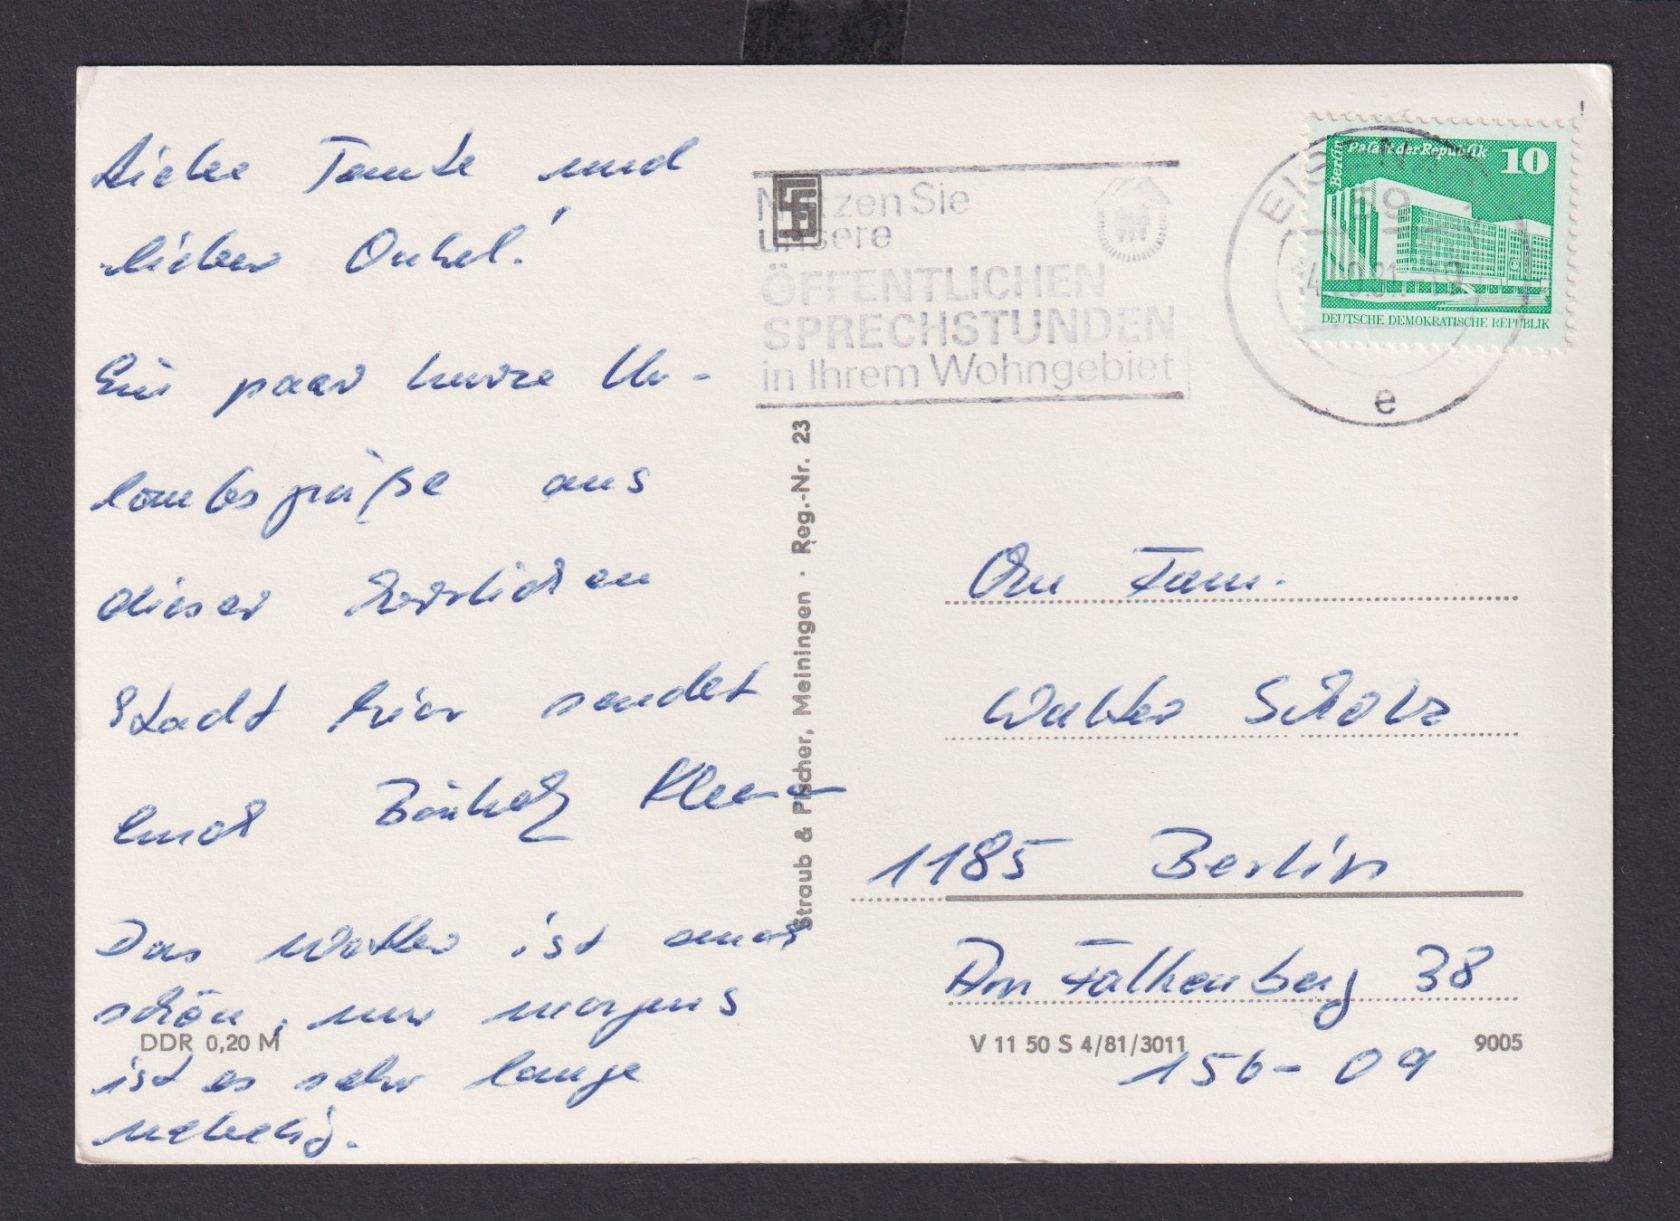 Liebe Tante und
lieber Onkel!
Ein paar kurze Ur-
laubsgrüße aus
dieser herrlichen
Stadt hier sendet
Euch
Das Wetter ist auch
schön, nur morgens
ist es sehr lange
nebelig.
DDR 0,20 M
Straub & Fischer, Meiningen · Reg.-Nr. 23
Nutzen Sie
unsere
ÖFFENTLICHEN
SPRECHSTUNDEN
in Ihrem Wohngebiet
59
e
Berlin
Palast der Republik
10
DEUTSCHE DEMOKRATISCHE REPUBLIK
An Fam.
Walter Scholz
1185 Berlin
Am Falkenberg 38
V 11 50 S 4/81/3011
9005
156-09